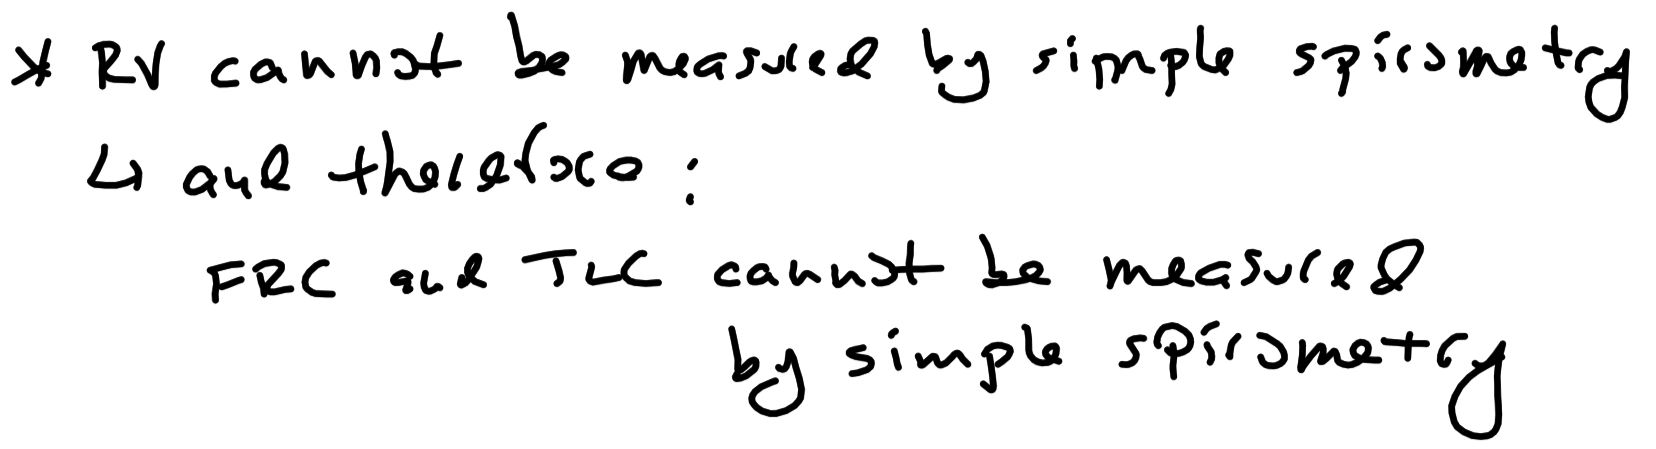 * RV cannot be measured by simple spirometry
↳ and therefore :
FRC and TLC cannot be measured
by simple spirometry